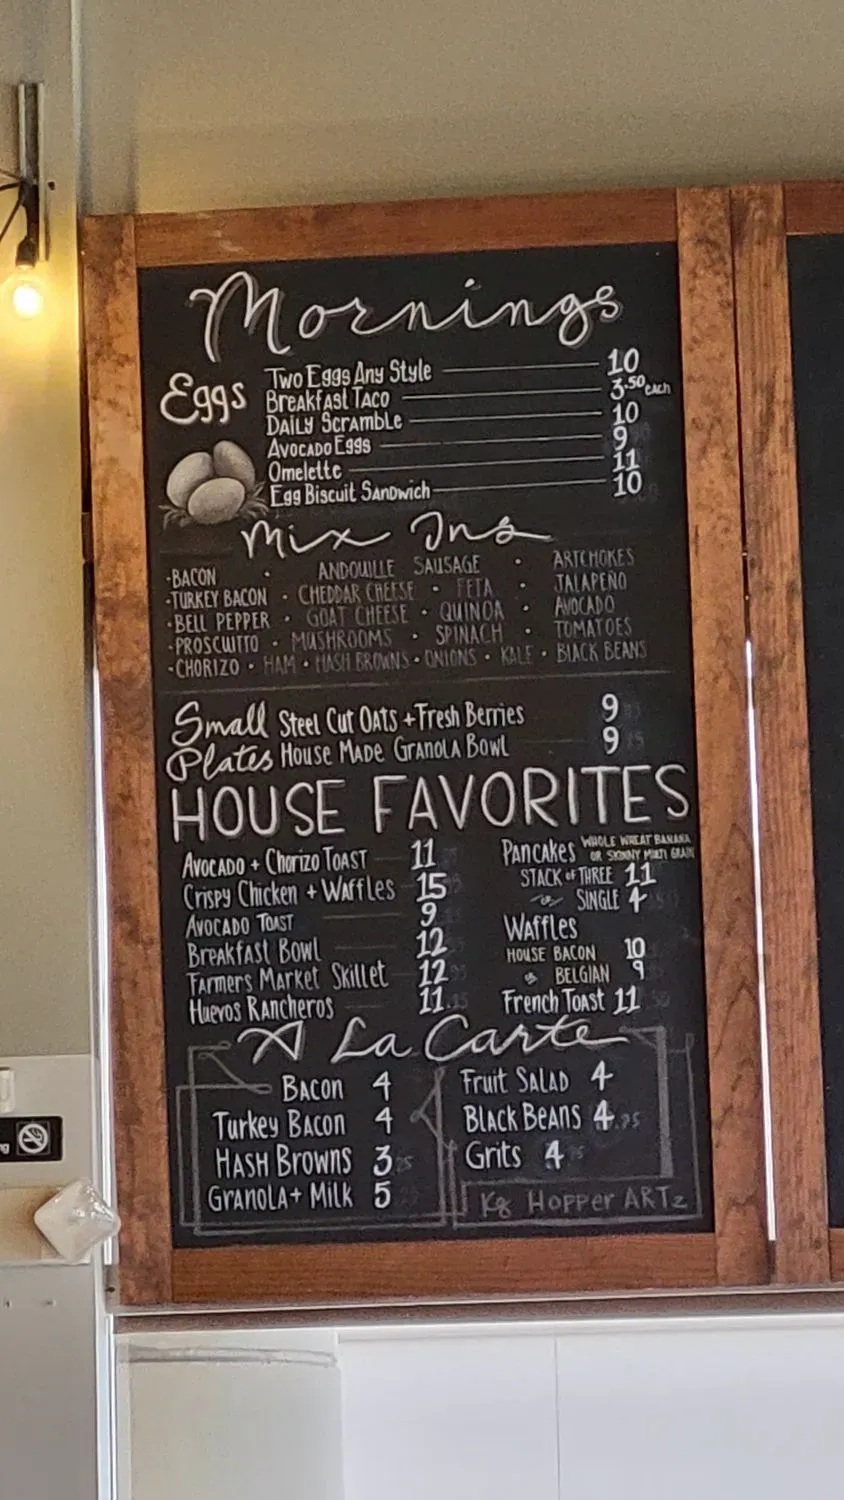 Mornings
Eggs
Two Eggs Any Style 10
Breakfast Taco 3.50 each
Daily Scramble 10
Avocado Eggs 9
Omelette 11
Egg Biscuit Sandwich 10
Mix Ins
·BACON · ANDOUILLE SAUSAGE · ARTCHOKES
·TURKEY BACON · CHEDDAR CHEESE · FETA · JALAPEÑO
·BELL PEPPER · GOAT CHEESE · QUINOA · AVOCADO
·PROSCUITTO · MUSHROOMS · SPINACH · TOMATOES
·CHORIZO · HAM · HASH BROWNS · ONIONS · KALE · BLACK BEANS
Small Plates
Steel Cut Oats + Fresh Berries 9
House Made Granola Bowl 9
HOUSE FAVORITES
Avocado + Chorizo Toast 11
Crispy Chicken + Waffles 15
Avocado Toast 9
Breakfast Bowl 12
Farmers Market Skillet 12
Huevos Rancheros 11
Pancakes WHOLE WHEAT BANANA
OR SKINNY MULTI GRAIN
STACK of THREE 11
or SINGLE 4
Waffles
HOUSE BACON 10
or BELGIAN 9
French Toast 11
A La Carte
Bacon 4
Turkey Bacon 4
Hash Browns 3
Granola + Milk 5
Fruit Salad 4
Black Beans 4
Grits 4
Kg Hopper ARTz